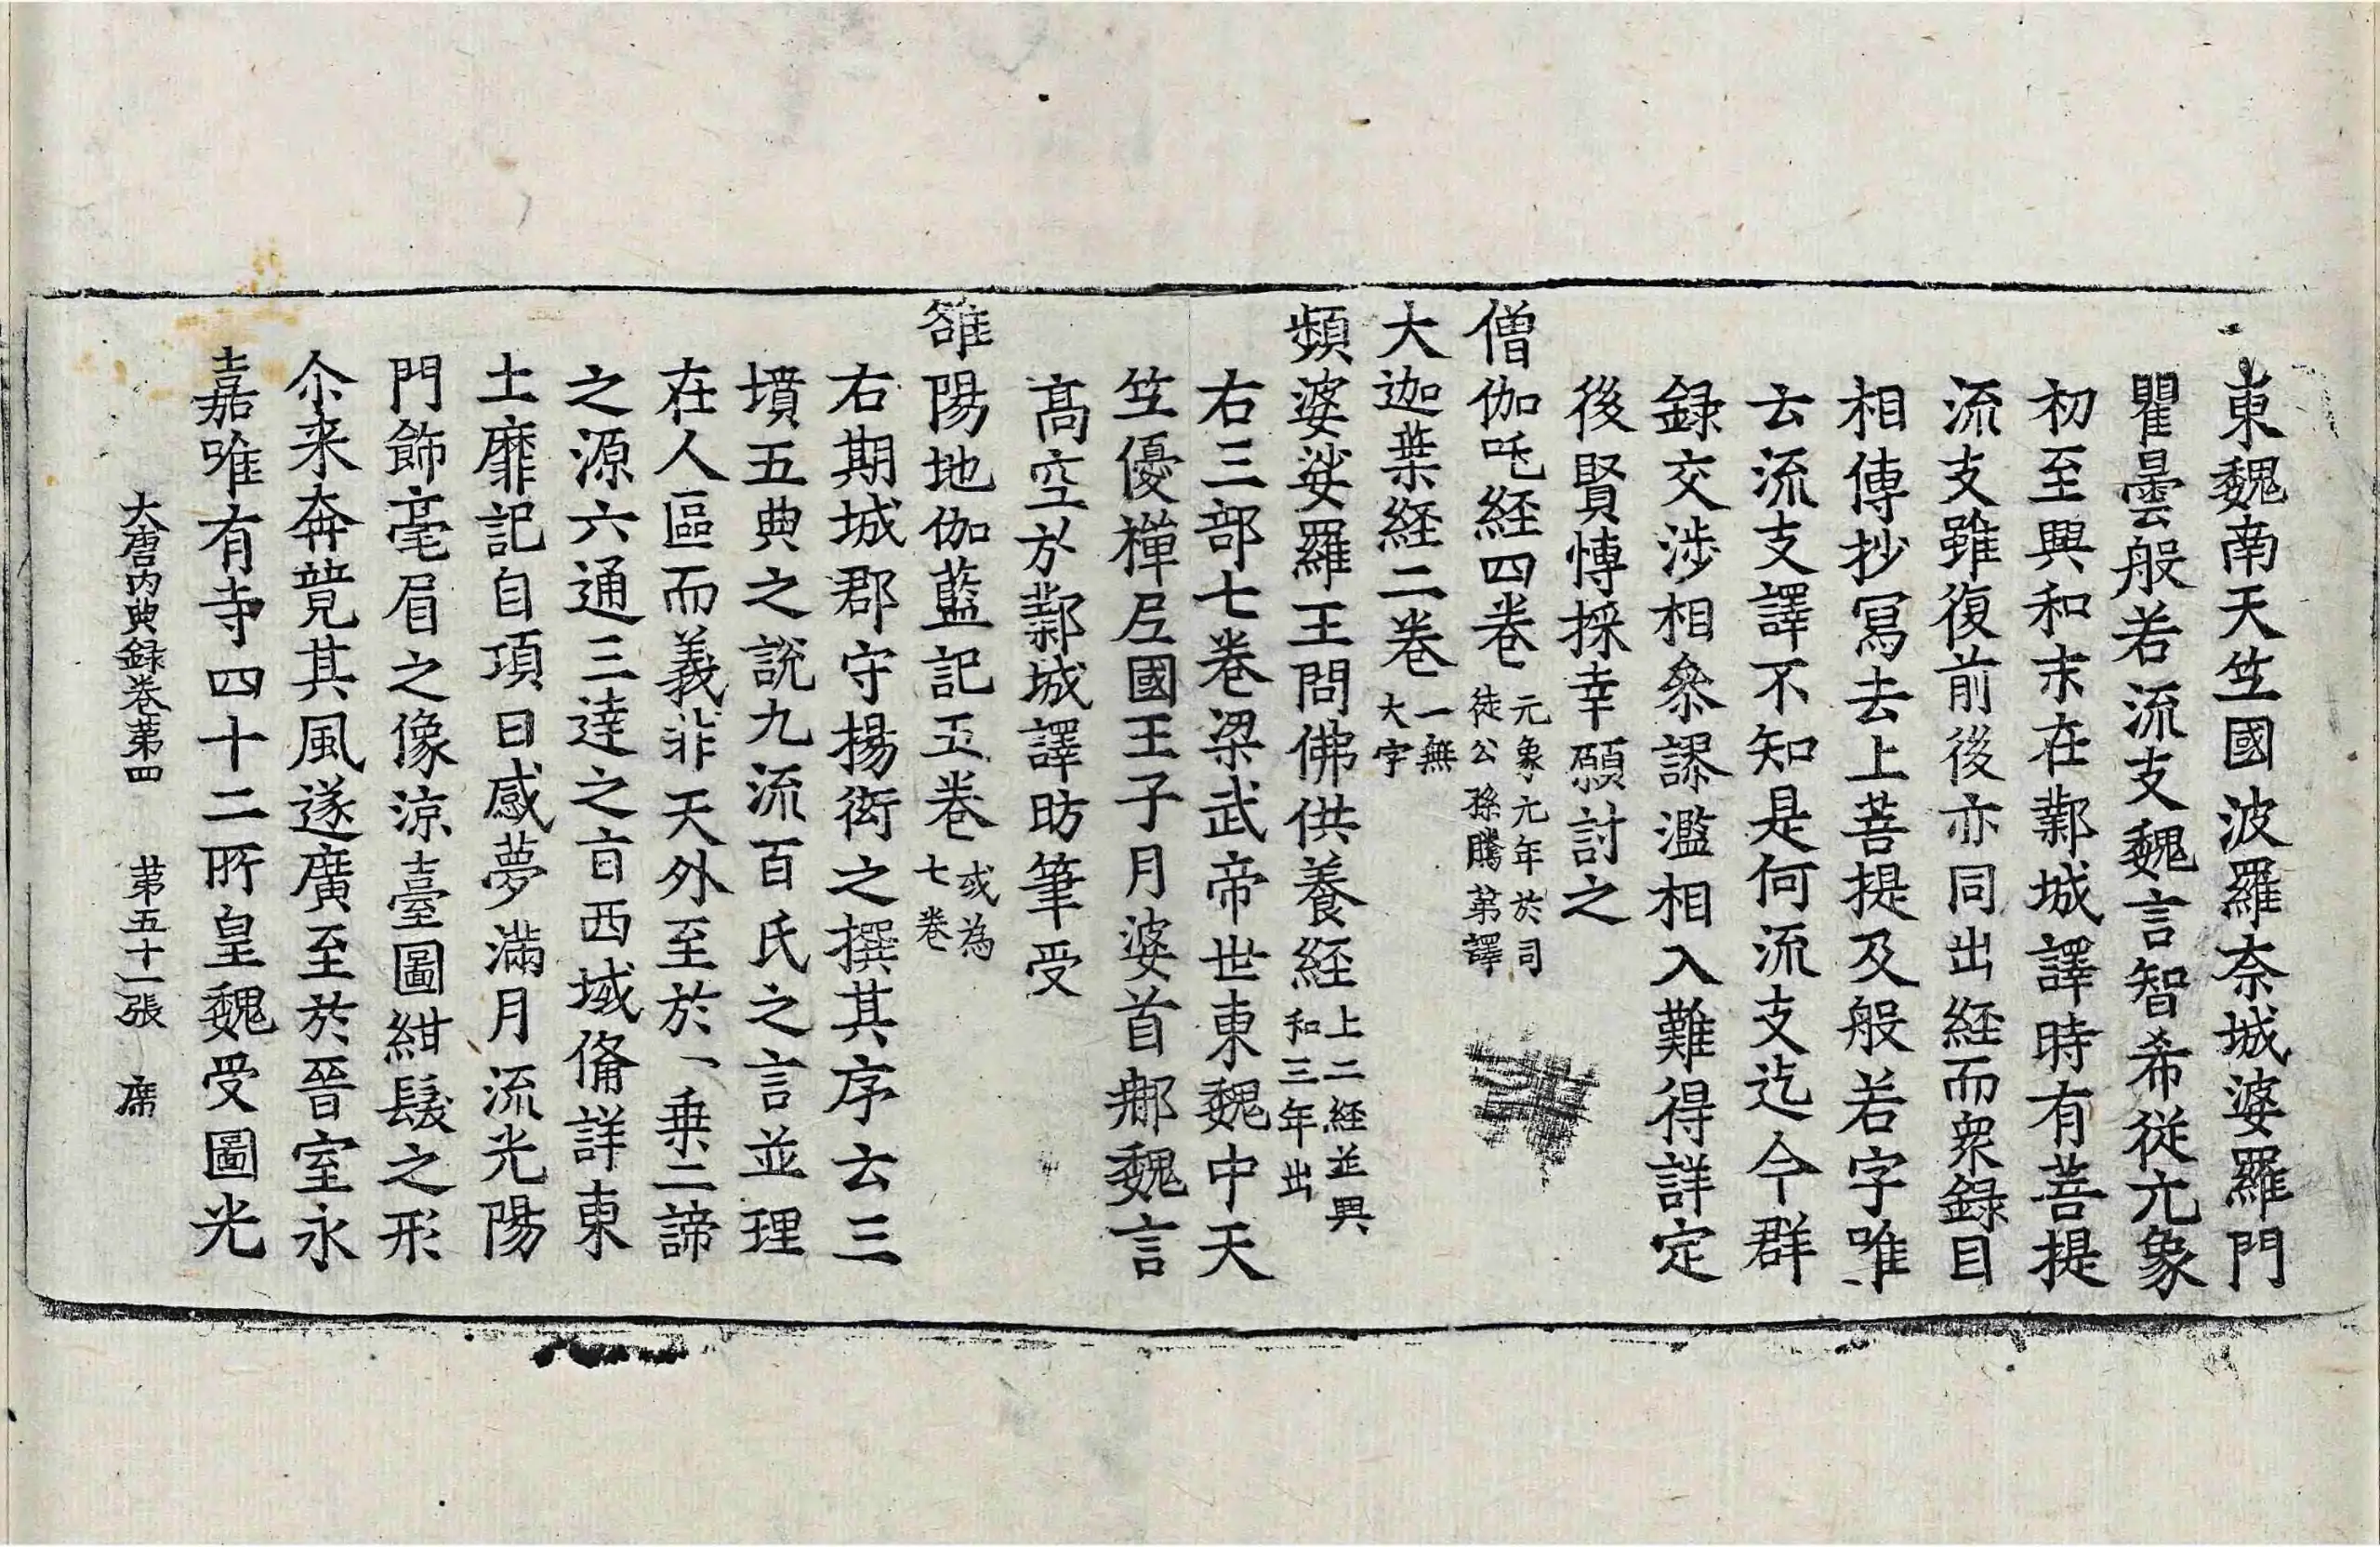 東魏南天竺國波羅奈城婆羅門
瞿曇般若流支魏言智希從元象
初至興和末在鄴城譯時有菩提
流支雖復前後亦同出経而衆録目
相傳抄寫去上菩提及般若字唯
云流支譯不知是何流支迄今群
録交渉相叅謬濫相入難得詳定
後賢愽採幸願討之
僧伽吒経四卷元象元年於司徒公孫騰苐譯
大迦葉経二卷一無大字
頻婆娑羅王問佛供養経上二経並興和三年出
右三部七卷梁武帝世東魏中天
竺優禪尼國王子月婆首那魏言
髙空於鄴城譯昉筆受
雒陽地伽藍記五卷或為七卷
右期城郡守揚衒之撰其序云三
墳五典之說九流百氏之言並理
在人區而義非天外至於一乗二諦
之源六通三達之言西域俻詳東
土靡記自項日感夢滿月流光陽
門飾毫眉之像涼臺圖紺髮之形
尒来奔競其風遂廣至於晉室永
嘉唯有寺四十二所皇魏受圖光
大唐内典録卷苐四　苐五十一張　席